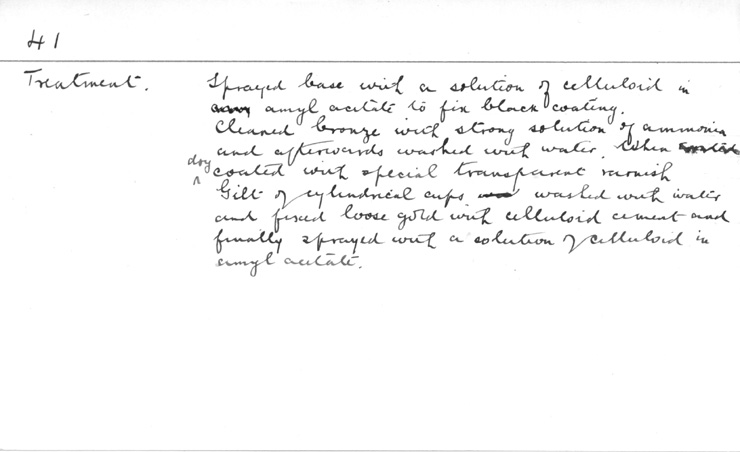 41
Treatment. Sprayed base with a solution of celluloid in
amyl acetate to fix black coating.
Cleaned bronze with strong solution of ammonia
and afterwards washed with water. When
dry coated with special transparent varnish
Gilt of cylindrical cups washed with water
and fixed loose gold with celluloid cement and
finally sprayed with a solution of celluloid in
amyl acetate.